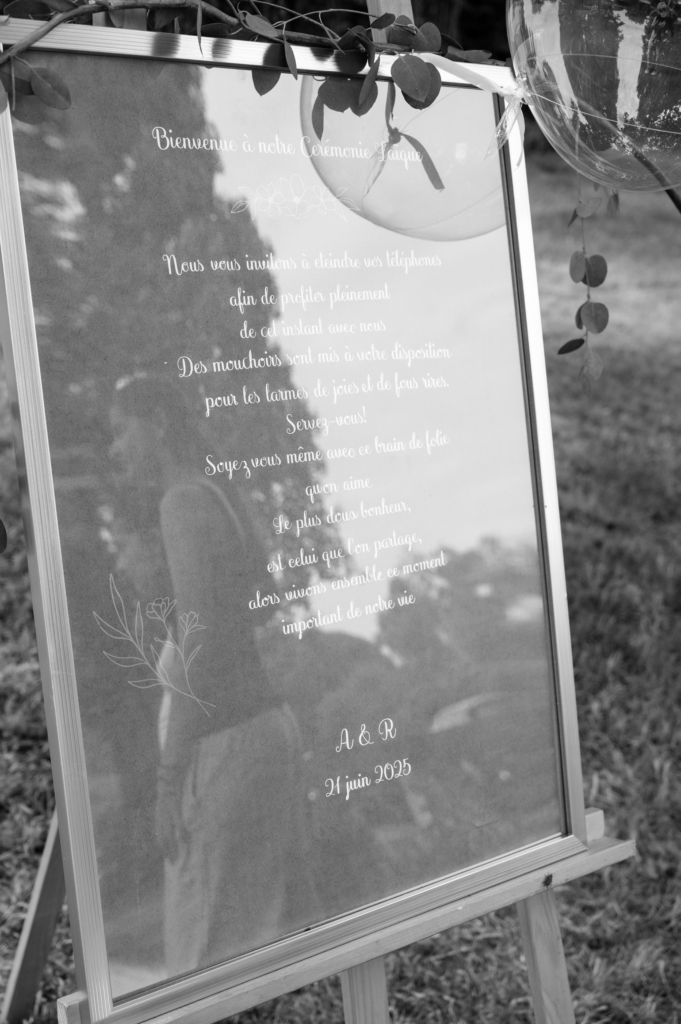 Bienvenue à notre Cérémonie Laïque
Nous vous invitons à éteindre vos téléphones
afin de profiter pleinement
de cet instant avec nous
Des mouchoirs sont mis à votre disposition
pour les larmes de joies et de fous rires.
Servez-vous!
Soyez vous même avec ce brain de folie
qu'on aime
Le plus doux bonheur,
est celui que l'on partage,
alors vivons ensemble ce moment
important de notre vie
A & R
21 juin 2025